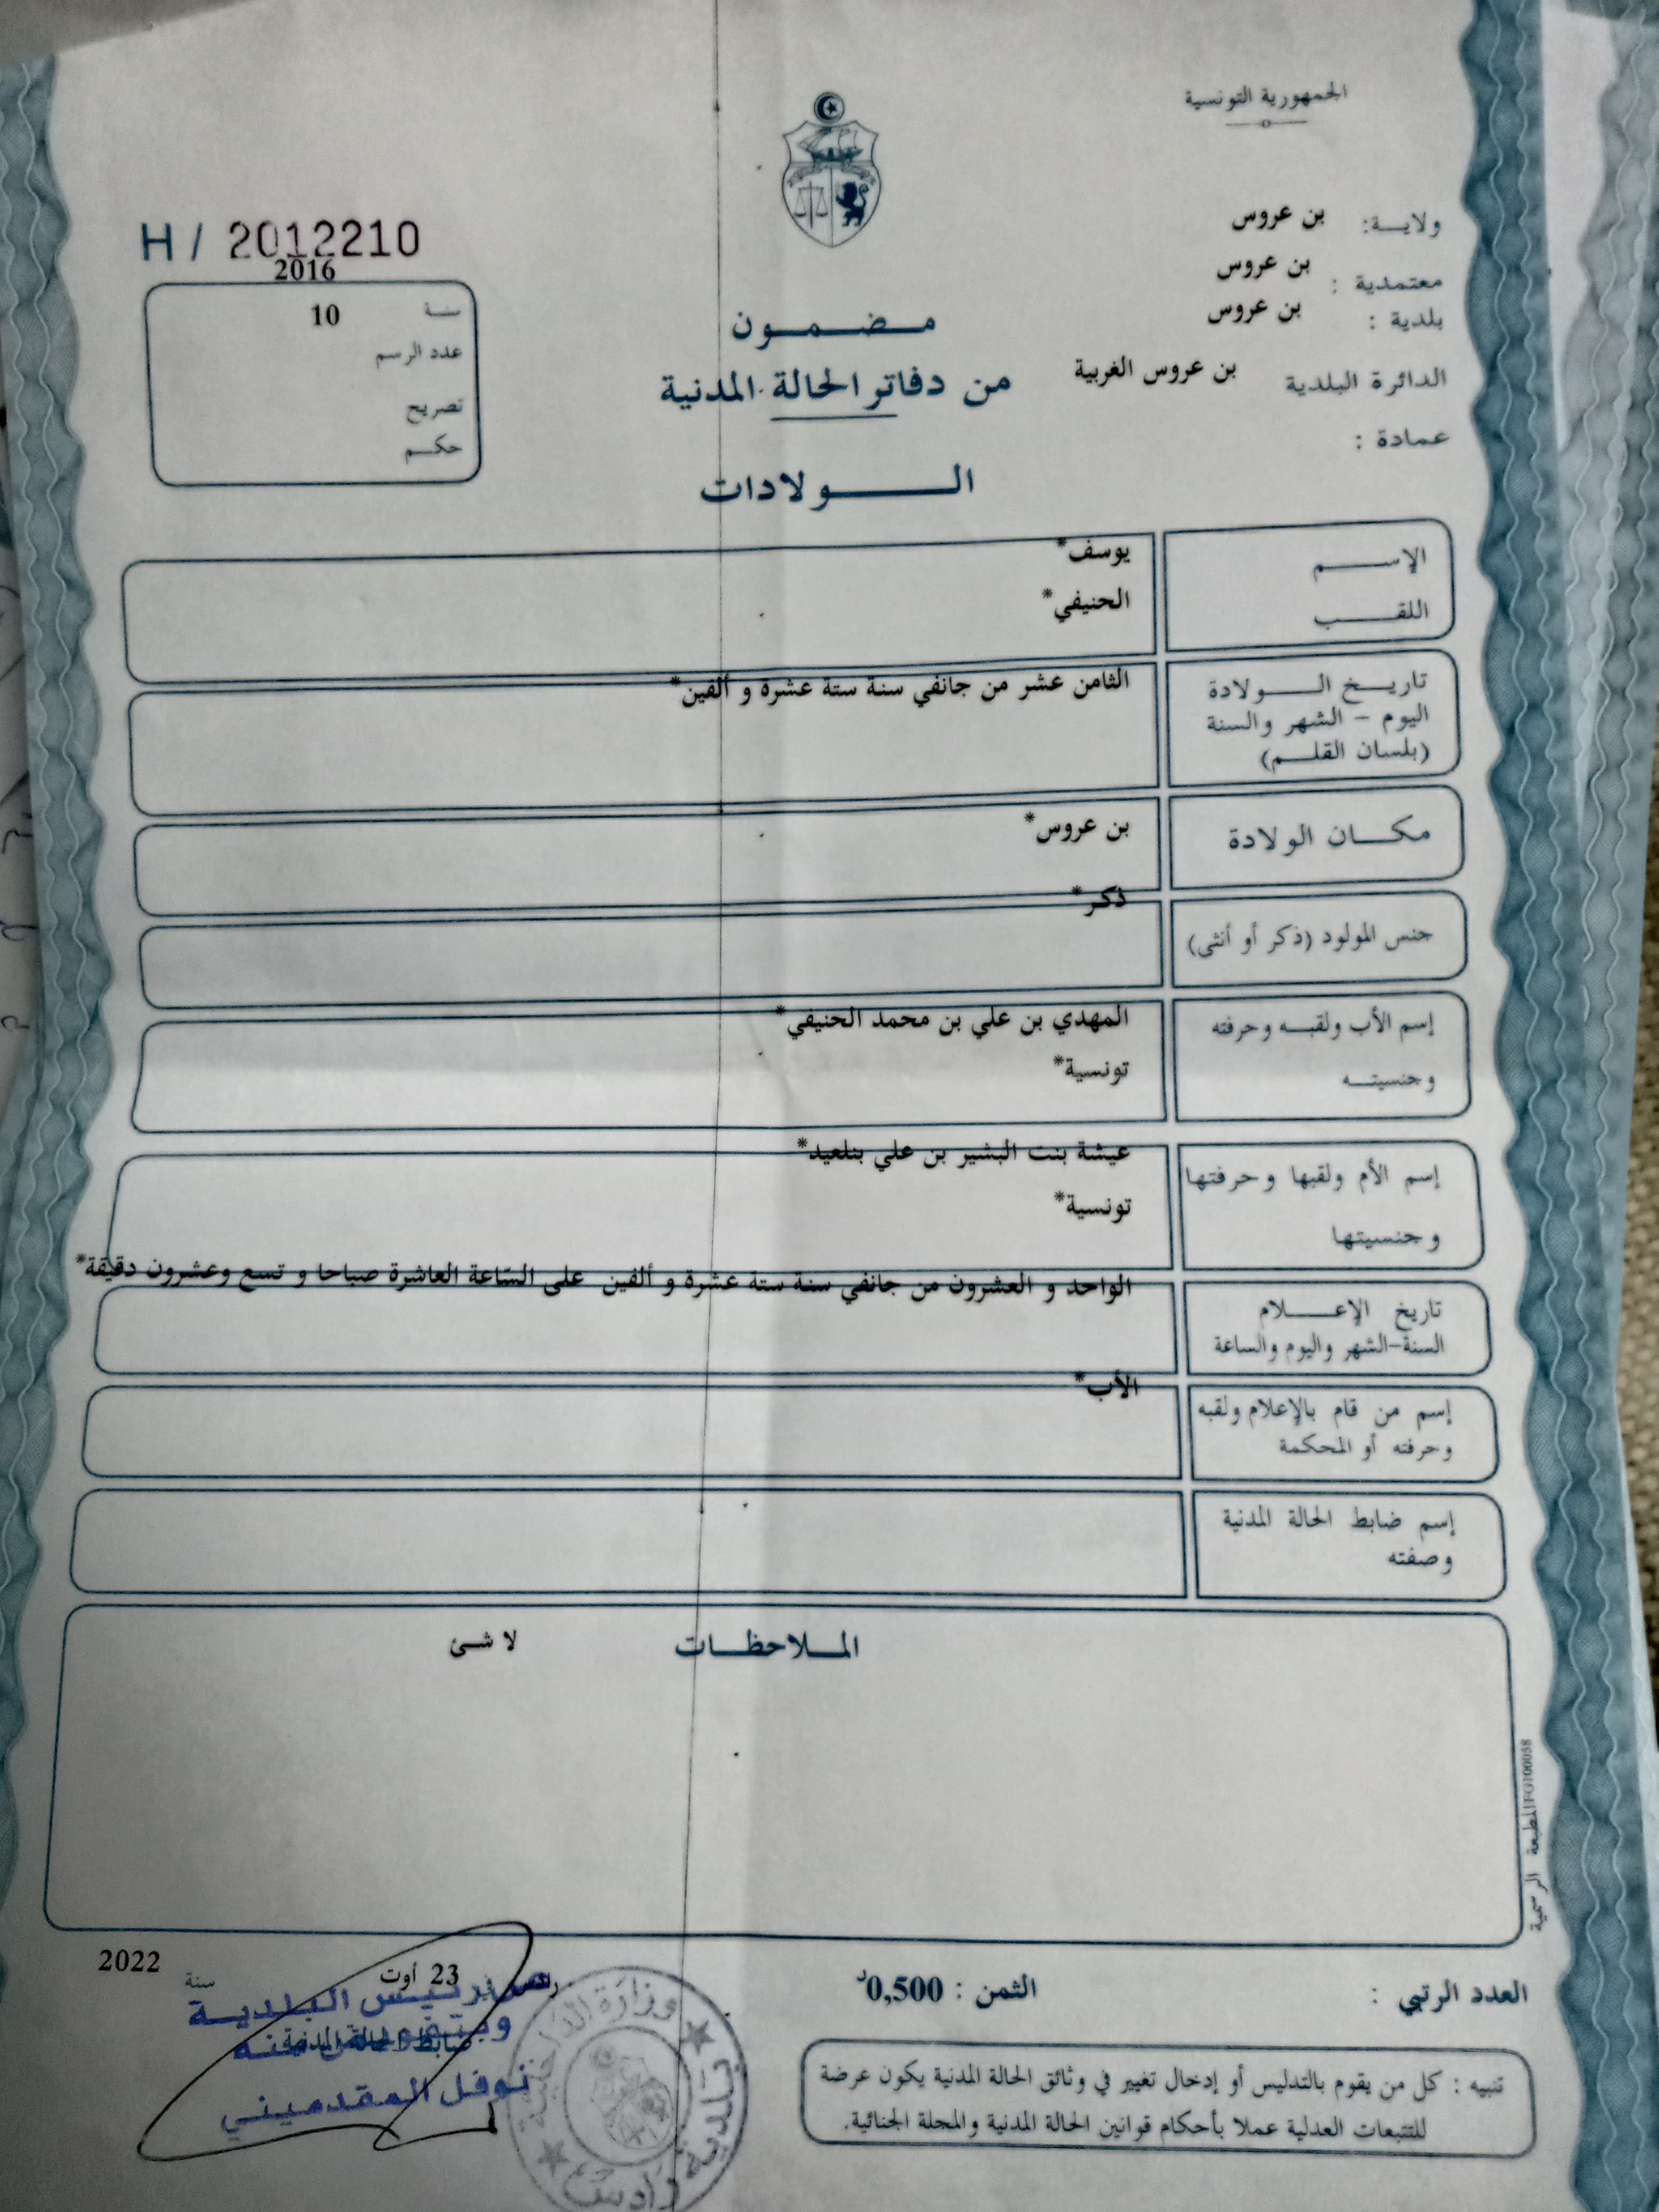 الجمهورية التونسية
ولاية: بن عروس
معتمدية : بن عروس
بلدية : بن عروس
الدائرة البلدية بن عروس الغربية
عمادة :
H / 2012210
2016
سنة 10
عدد الرسم
تصريح
حكم
مضمون
من دفاتر الحالة المدنية
الولادات
الإسم يوسف*
اللقب الحنيفي*
تاريخ الولادة الثامن عشر من جانفي سنة ستة عشرة و ألفين*
اليوم - الشهر والسنة
(بلسان القلم)
مكان الولادة بن عروس*
جنس المولود (ذكر أو أنثى) ذكر*
إسم الأب ولقبه وحرفته المهدي بن علي بن محمد الحنيفي*
وجنسيته تونسية*
إسم الأم ولقبها وحرفتها عيشة بنت البشير بن علي بنلعيد*
وجنسيتها تونسية*
تاريخ الإعلام الواحد و العشرون من جانفي سنة ستة عشرة و ألفين على السّاعة العاشرة صباحا و تسع وعشرون دقيقة*
السنة-الشهر واليوم والساعة
إسم من قام بالإعلام ولقبه الأب*
وحرفته أو المحكمة
إسم ضابط الحالة المدنية
وصفته
الملاحظات لا شئ
المطبعة الرسمية FG100058
العدد الرتبي : الثمن : 0,500د
23 أوت سنة 2022
رئيس البلدية
ضابط الحالة المدنية
نوفل المقدميني
وزارة الداخلية
بلدية رادس
تنبيه : كل من يقوم بالتدليس أو إدخال تغيير في وثائق الحالة المدنية يكون عرضة
للتتبعات العدلية عملا بأحكام قوانين الحالة المدنية والمجلة الجنائية.